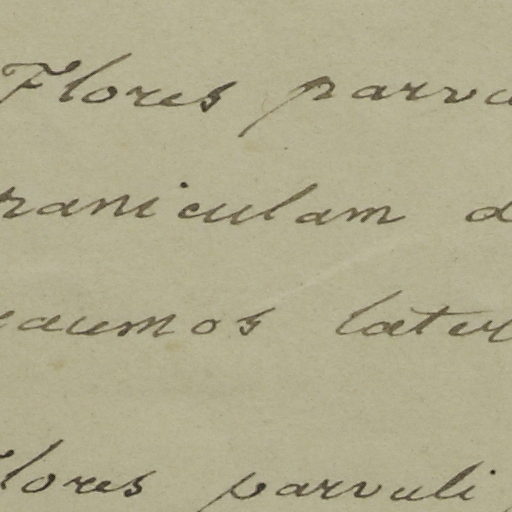 Flores parvu
raniculam d
racemos later
Flores parvuli